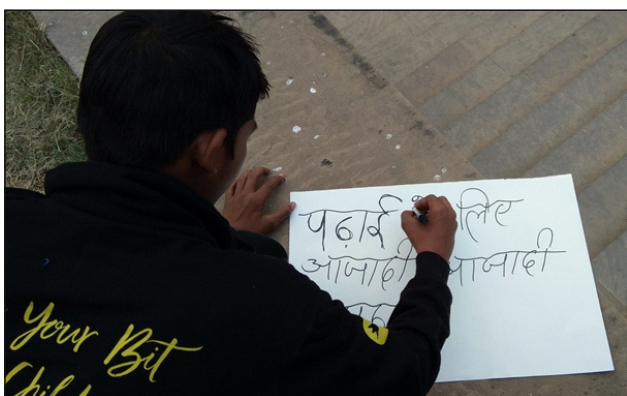 पढ़ाई लिए
आजादी आजादी
Your Bit